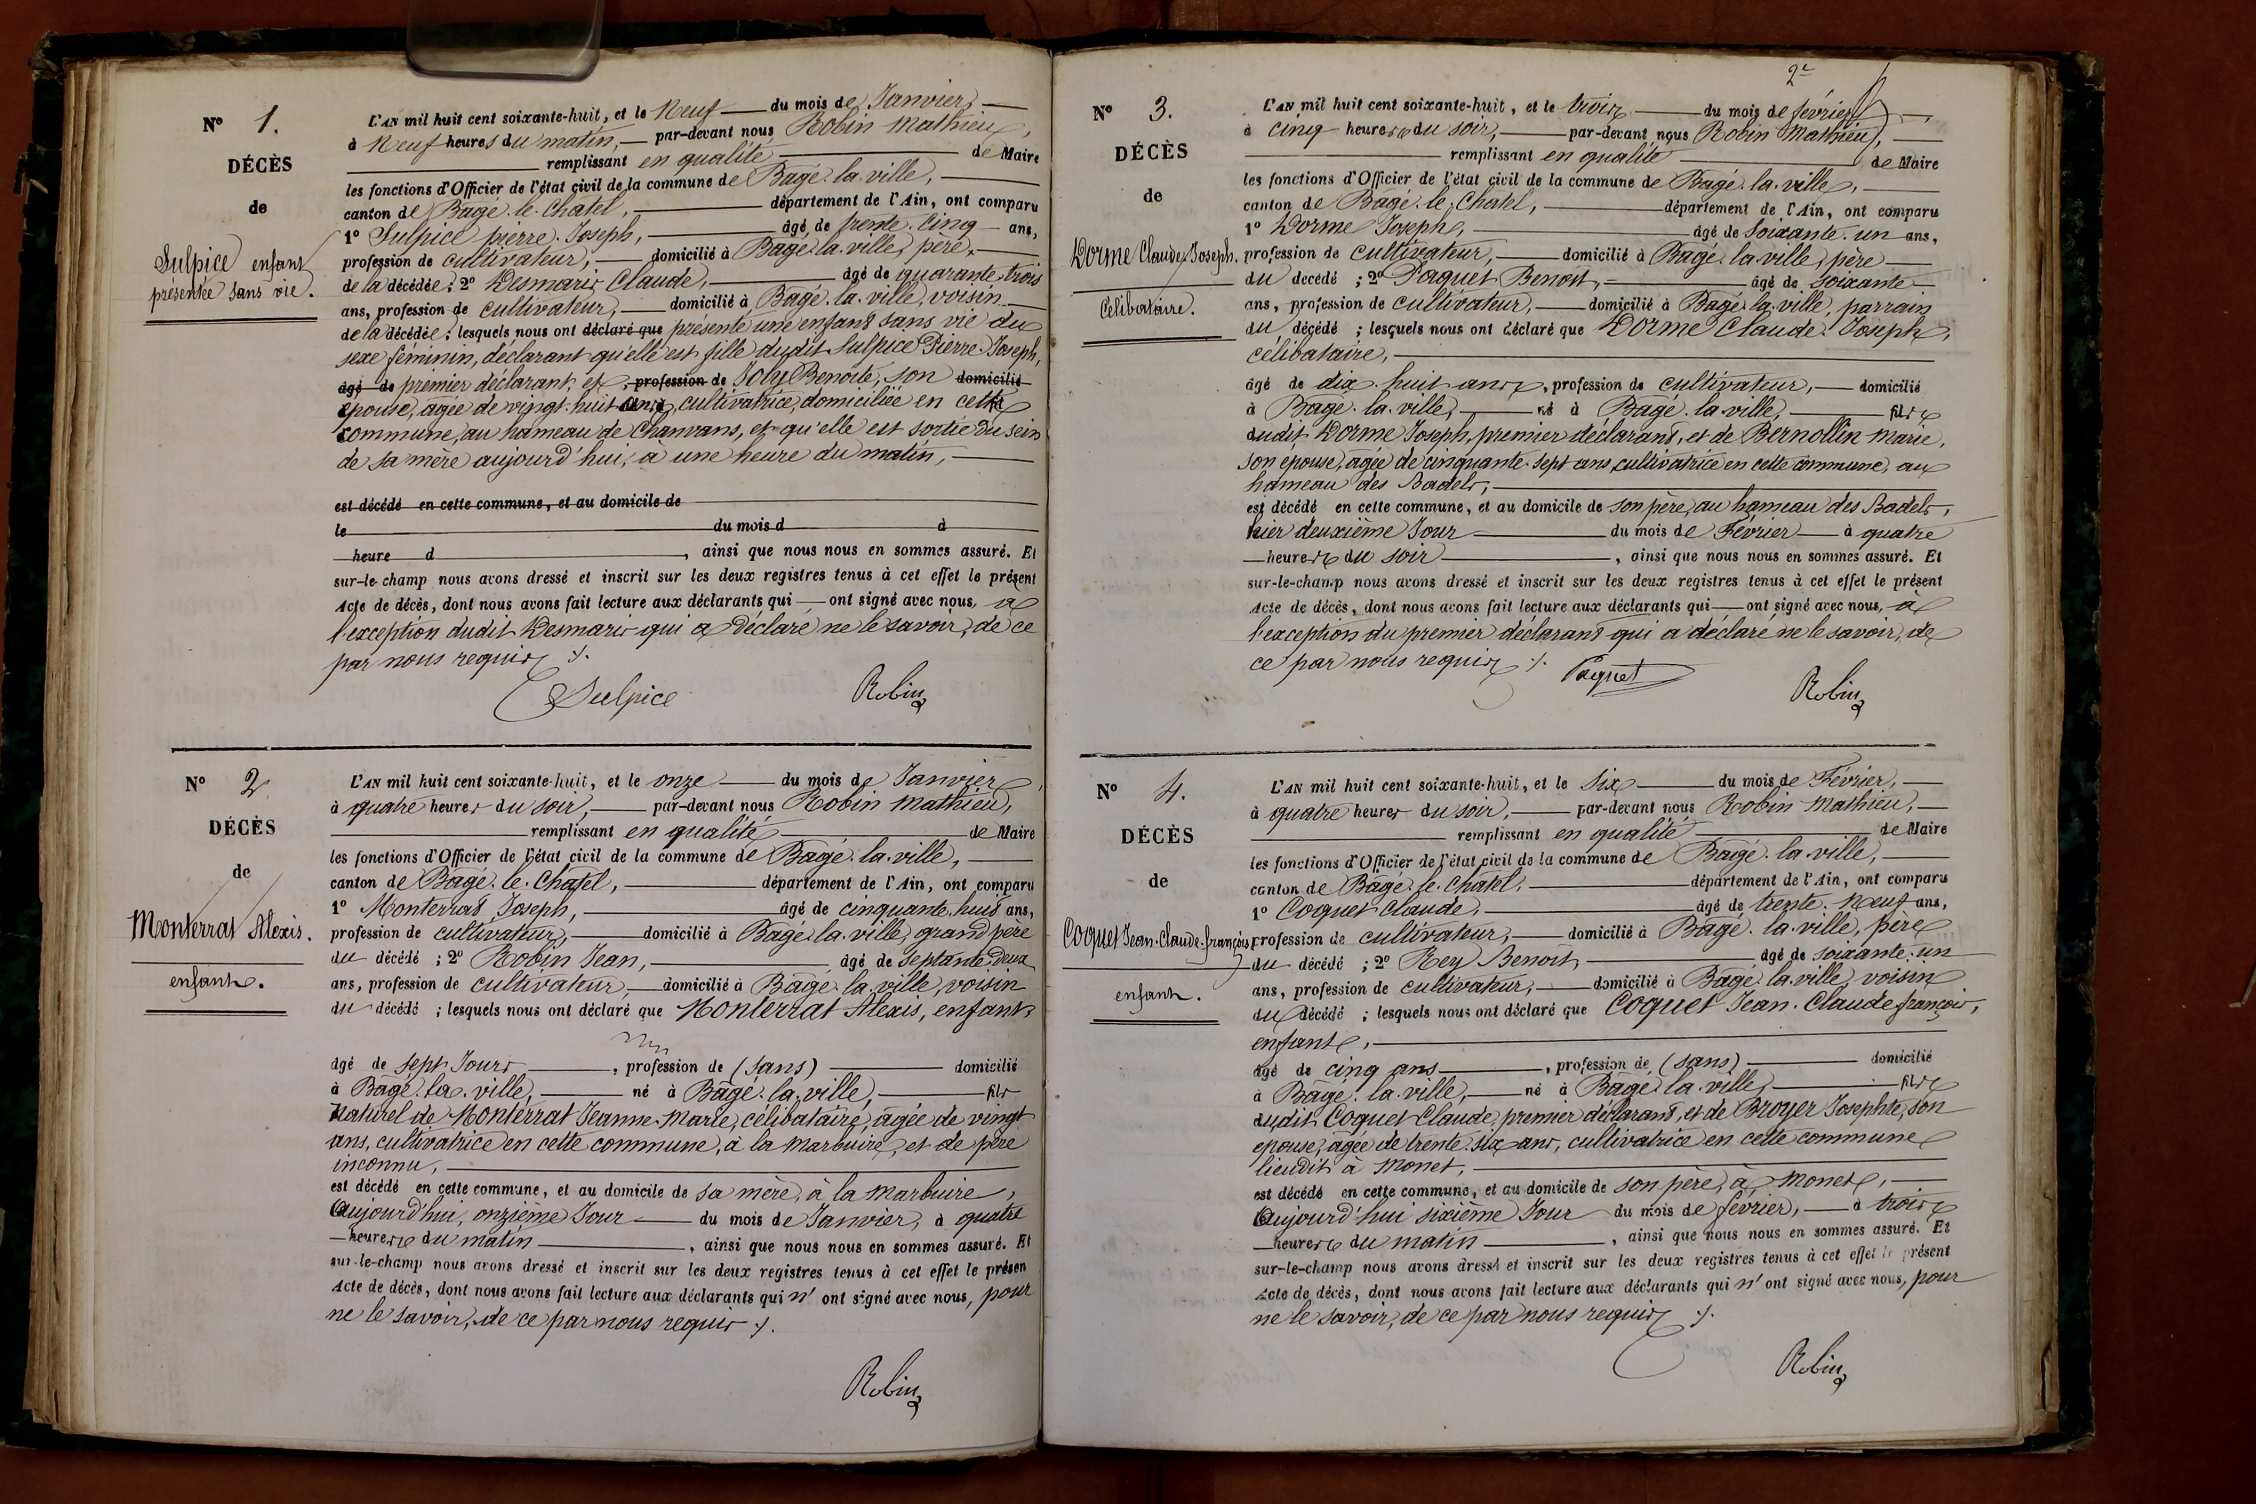 N° 1.
DÉCÈS
de
Sulpice enfant
présentée sans vie.
L'AN mil huit cent soixante-huit, et le Neuf du mois de Janvier,
à Neuf heures du matin, par-devant nous Robin Mathieu,
remplissant en qualité de Maire
les fonctions d'Officier de l'état civil de la commune de Bagé-la-ville,
canton de Bagé-le-Chatel, département de l'Ain, ont comparu
1° Sulpice pierre-Joseph, âgé de trente-cinq ans,
profession de cultivateur, domicilié à Bagé-la-ville, père
de la décédée ; 2° Desmaris Claude, âgé de quarante-trois
ans, profession de cultivateur, domicilié à Bagé-la-ville, voisin
de la décédée ; lesquels nous ont déclaré que présenté une enfant sans vie du
sexe féminin, déclarant qu'elle est fille dudit Sulpice Pierre-Joseph,
âgé de premier déclarant, et, profession de Joly Benoite, son domicilié
épouse, âgée de vingt-huit ans, cultivatrice, domiciliée en cette
commune, au hameau de Chanvans, et qu'elle est sortie du sein
de sa mère aujourd'hui, à une heure du matin,
est décédé en cette commune, et au domicile de
le du mois d à
heure d , ainsi que nous nous en sommes assuré. Et
sur-le-champ nous avons dressé et inscrit sur les deux registres tenus à cet effet le présent
Acte de décès, dont nous avons fait lecture aux déclarants qui ont signé avec nous, à
l'exception dudit Desmaris qui a déclaré ne le savoir, de ce
par nous requis ./.
Sulpice Robin
N° 2
DÉCÈS
de
Monterrat Alexis.
enfant.
L'AN mil huit cent soixante-huit, et le onze du mois de Janvier,
à quatre heures du soir, par-devant nous Robin Mathieu,
remplissant en qualité de Maire
les fonctions d'Officier de l'état civil de la commune de Bagé-la-ville,
canton de Bagé-le-Chatel, département de l'Ain, ont comparu
1° Monterrat Joseph, âgé de cinquante-huit ans,
profession de cultivateur, domicilié à Bagé-la-ville, grand père
du décédé ; 2° Robin Jean, âgé de septante-deux
ans, profession de cultivateur, domicilié à Bagé-la-ville, voisin
du décédé ; lesquels nous ont déclaré que Monterrat Alexis, enfant
âgé de sept Jours, profession de (sans) domicilié
à Bagé-la-ville, né à Bagé-la-ville, fils
naturel de Monterrat Jeanne-Marie, célibataire, âgée de vingt
ans, cultivatrice en cette commune, à la Marbuire, et de père
inconnu,
est décédé en cette commune, et au domicile de sa mère, à la Marbuire,
Aujourd'hui, onzième Jour du mois de Janvier, à quatre
heures du matin, ainsi que nous nous en sommes assuré. Et
sur-le-champ nous avons dressé et inscrit sur les deux registres tenus à cet effet le présen
Acte de décès, dont nous avons fait lecture aux déclarants qui n'ont signé avec nous, pour
ne le savoir, de ce par nous requis ./.
Robin
2e
N° 3.
DÉCÈS
de
Dorme Claude-Joseph.
Célibataire.
L'AN mil huit cent soixante-huit, et le trois du mois de février,
à cinq heures du soir, par-devant nous Robin Mathieu,
remplissant en qualité de Maire
les fonctions d'Officier de l'état civil de la commune de Bagé-la-ville,
canton de Bagé-le-Chatel, département de l'Ain, ont comparu
1° Dorme Joseph, âgé de soixante-un ans,
profession de cultivateur, domicilié à Bagé-la-ville, père
du décédé ; 2° Paquet Benoit, âgé de soixante
ans, profession de cultivateur, domicilié à Bagé-la-ville, parrain
du décédé ; lesquels nous ont déclaré que Dorme Claude-Joseph,
célibataire,
âgé de dix-huit ans, profession de cultivateur, domicilié
à Bagé-la-ville, né à Bagé-la-ville, fils
dudit Dorme Joseph, premier déclarant, et de Bernollin Marie,
son épouse, âgée de cinquante-sept ans cultivatrice en cette commune, au
hameau des Badels,
est décédé en cette commune, et au domicile de son père, au hameau des Badels,
hier deuxième Jour du mois de Février à quatre
heures du soir, ainsi que nous nous en sommes assuré. Et
sur-le-champ nous avons dressé et inscrit sur les deux registres tenus à cet effet le présent
Acte de décès, dont nous avons fait lecture aux déclarants qui ont signé avec nous, à
l'exception du premier déclarant qui a déclaré ne le savoir, de
ce par nous requis ./. Paquet
Robin
N° 4.
DÉCÈS
de
Coquet Jean-Claude-françois,
enfant.
L'AN mil huit cent soixante-huit, et le six du mois de Février,
à quatre heures du soir, par-devant nous Robin Mathieu,
remplissant en qualité de Maire
les fonctions d'Officier de l'état civil de la commune de Bagé-la-ville,
canton de Bagé-le-Chatel, département de l'Ain, ont comparu
1° Coquet Claude, âgé de trente-neuf ans,
profession de cultivateur, domicilié à Bagé-la-ville, père
du décédé ; 2° Rey Benoit, âgé de soixante-un
ans, profession de cultivateur, domicilié à Bagé-la-ville, voisin
du décédé ; lesquels nous ont déclaré que Coquet Jean-Claude françois,
enfant,
âgé de cinq ans, profession de (sans) domicilié
à Bagé-la-ville, né à Bagé-la-ville, fils
dudit Coquet Claude, premier déclarant, et de Broyer Josephte, son
épouse, âgée de trente-six ans, cultivatrice en cette commune
lieudit à Monet,
est décédé en cette commune, et au domicile de son père, à Monet,
Aujourd'hui sixième Jour du mois de février, à trois
heures du matin, ainsi que nous nous en sommes assuré. Et
sur-le-champ nous avons dressé et inscrit sur les deux registres tenus à cet effet le présent
Acte de décès, dont nous avons fait lecture aux déclarants qui n'ont signé avec nous, pour
ne le savoir, de ce par nous requis ./.
Robin